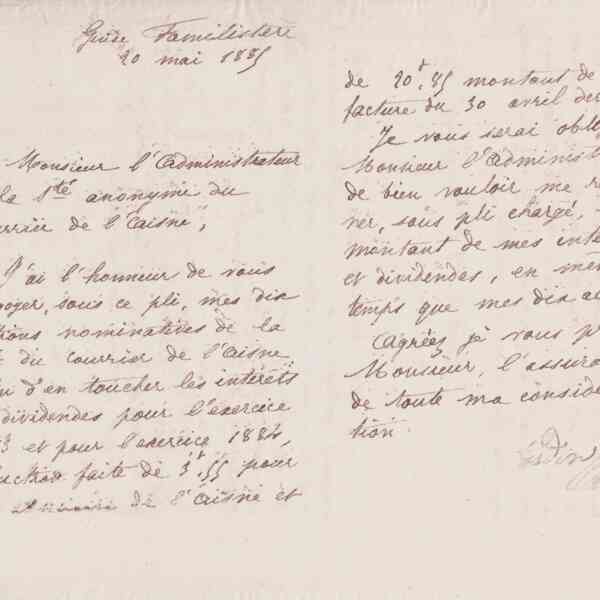 Guise Familistère
20 mai 1885
Monsieur l'Administrateur
la Sté anonyme du
urrier de l'Aisne,
J'ai l'honneur de vous
voyer, sous ce pli, mes dix
tions nominatives de la
du Courrier de l'Aisne
n d'en toucher les intérêts
dividendes pour l'exercice
3 et pour l'exercice 1884,
uction faite de 3f,55 pour
de l'Aisne et
de 20f,85 montant de
facture du 30 avril der
Je vous serai obli
Monsieur l'Administ
de bien vouloir me r
ner, sous pli chargé,
montant de mes inté
et dividendes, en mêm
temps que mes dix ac
Agréez je vous pr
Monsieur, l'assura
de toute ma considé
tion.